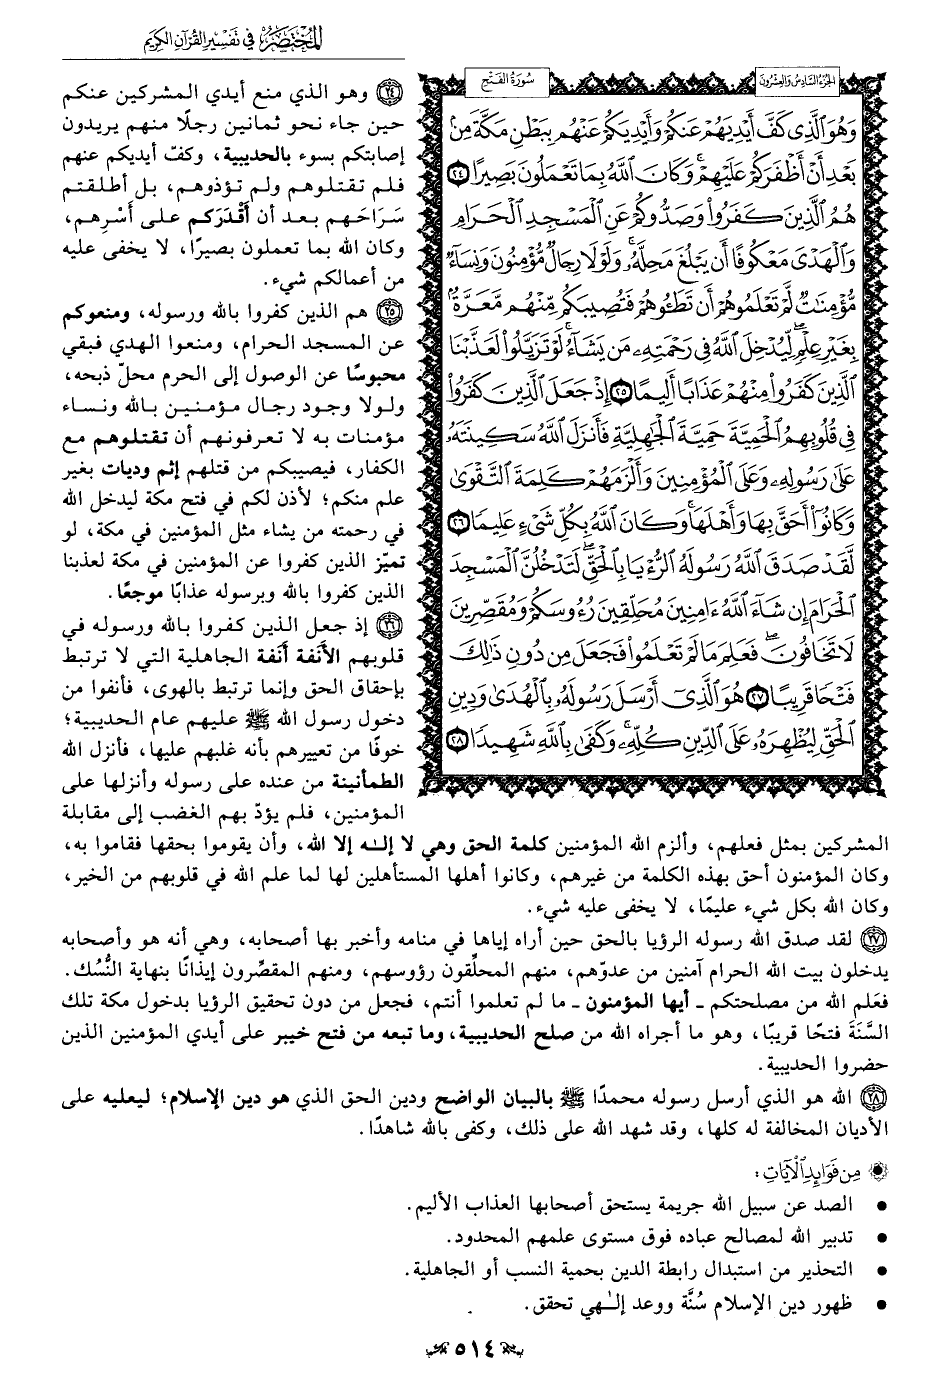 المختصر في تفسير القرآن الكريم
الجزء السادس والعشرون
سورة الفتح
وَهُوَ ٱلَّذِى كَفَّ أَيْدِيَهُمْ عَنكُمْ وَأَيْدِيَكُمْ عَنْهُم بِبَطْنِ مَكَّةَ مِنۢ
بَعْدِ أَنْ أَظْفَرَكُمْ عَلَيْهِمْ ۚ وَكَانَ ٱللَّهُ بِمَا تَعْمَلُونَ بَصِيرًا ٢٤
هُمُ ٱلَّذِينَ كَفَرُوا۟ وَصَدُّوكُمْ عَنِ ٱلْمَسْجِدِ ٱلْحَرَامِ
وَٱلْهَدْىَ مَعْكُوفًا أَن يَبْلُغَ مَحِلَّهُۥ ۚ وَلَوْلَا رِجَالٌ مُّؤْمِنُونَ وَنِسَآءٌ
مُّؤْمِنَٰتٌ لَّمْ تَعْلَمُوهُمْ أَن تَطَـُٔوهُمْ فَتُصِيبَكُم مِّنْهُم مَّعَرَّةٌۢ
بِغَيْرِ عِلْمٍ ۖ لِّيُدْخِلَ ٱللَّهُ فِى رَحْمَتِهِۦ مَن يَشَآءُ ۚ لَوْ تَزَيَّلُوا۟ لَعَذَّبْنَا
ٱلَّذِينَ كَفَرُوا۟ مِنْهُمْ عَذَابًا أَلِيمًا ٢٥ إِذْ جَعَلَ ٱلَّذِينَ كَفَرُوا۟
فِى قُلُوبِهِمُ ٱلْحَمِيَّةَ حَمِيَّةَ ٱلْجَٰهِلِيَّةِ فَأَنزَلَ ٱللَّهُ سَكِينَتَهُۥ
عَلَىٰ رَسُولِهِۦ وَعَلَى ٱلْمُؤْمِنِينَ وَأَلْزَمَهُمْ كَلِمَةَ ٱلتَّقْوَىٰ
وَكَانُوٓا۟ أَحَقَّ بِهَا وَأَهْلَهَا ۚ وَكَانَ ٱللَّهُ بِكُلِّ شَىْءٍ عَلِيمًا ٢٦
لَّقَدْ صَدَقَ ٱللَّهُ رَسُولَهُ ٱلرُّءْيَا بِٱلْحَقِّ ۖ لَتَدْخُلُنَّ ٱلْمَسْجِدَ
ٱلْحَرَامَ إِن شَآءَ ٱللَّهُ ءَامِنِينَ مُحَلِّقِينَ رُءُوسَكُمْ وَمُقَصِّرِينَ
لَا تَخَافُونَ ۖ فَعَلِمَ مَا لَمْ تَعْلَمُوا۟ فَجَعَلَ مِن دُونِ ذَٰلِكَ
فَتْحًا قَرِيبًا ٢٧ هُوَ ٱلَّذِىٓ أَرْسَلَ رَسُولَهُۥ بِٱلْهُدَىٰ وَدِينِ
ٱلْحَقِّ لِيُظْهِرَهُۥ عَلَى ٱلدِّينِ كُلِّهِۦ ۚ وَكَفَىٰ بِٱللَّهِ شَهِيدًا ٢٨
٢٤ وهو الذي منع أيدي المشركين عنكم
حين جاء نحو ثمانين رجلًا منهم يريدون
إصابتكم بسوء بالحديبية، وكفّ أيديكم عنهم
فلم تقتلوهم ولم تؤذوهم، بل أطلقتم
سَرَاحَهم بعد أن أقْدَرَكم على أَسْرِهم،
وكان الله بما تعملون بصيرًا، لا يخفى عليه
من أعمالكم شيء.
٢٥ هم الذين كفروا بالله ورسوله، ومنعوكم
عن المسجد الحرام، ومنعوا الهدي فبقي
محبوسًا عن الوصول إلى الحرم محلّ ذبحه،
ولولا وجود رجال مؤمنين بالله ونساء
مؤمنات به لا تعرفونهم أن تقتلوهم مع
الكفار، فيصيبكم من قتلهم إثم وديات بغير
علم منكم؛ لأذن لكم في فتح مكة ليدخل الله
في رحمته من يشاء مثل المؤمنين في مكة، لو
تميّز الذين كفروا عن المؤمنين في مكة لعذبنا
الذين كفروا بالله وبرسوله عذابًا موجعًا.
٢٦ إذ جعل الذين كفروا بالله ورسوله في
قلوبهم الأنَفة أنَفة الجاهلية التي لا ترتبط
بإحقاق الحق وإنما ترتبط بالهوى، فأنفوا من
دخول رسول الله ﷺ عليهم عام الحديبية؛
خوفًا من تعييرهم بأنه غلبهم عليها، فأنزل الله
الطمأنينة من عنده على رسوله وأنزلها على
المؤمنين، فلم يؤدّ بهم الغضب إلى مقابلة
المشركين بمثل فعلهم، وألزم الله المؤمنين كلمة الحق وهي لا إلـٰه إلا الله، وأن يقوموا بحقها فقاموا به،
وكان المؤمنون أحق بهذه الكلمة من غيرهم، وكانوا أهلها المستأهلين لها لما علم الله في قلوبهم من الخير،
وكان الله بكل شيء عليمًا، لا يخفى عليه شيء.
٢٧ لقد صدق الله رسوله الرؤيا بالحق حين أراه إياها في منامه وأخبر بها أصحابه، وهي أنه هو وأصحابه
يدخلون بيت الله الحرام آمنين من عدوّهم، منهم المحلِّقون رؤوسهم، ومنهم المقصِّرون إيذانًا بنهاية النُّسُك.
فعَلم الله من مصلحتكم ـ أيها المؤمنون ـ ما لم تعلموا أنتم، فجعل من دون تحقيق الرؤيا بدخول مكة تلك
السَّنَةَ فتحًا قريبًا، وهو ما أجراه الله من صلح الحديبية، وما تبعه من فتح خيبر على أيدي المؤمنين الذين
حضروا الحديبية.
٢٨ الله هو الذي أرسل رسوله محمدًا ﷺ بالبيان الواضح ودين الحق الذي هو دين الإسلام؛ ليعليه على
الأديان المخالفة له كلها، وقد شهد الله على ذلك، وكفى بالله شاهدًا.
من فوائد الآيات:
• الصد عن سبيل الله جريمة يستحق أصحابها العذاب الأليم.
• تدبير الله لمصالح عباده فوق مستوى علمهم المحدود.
• التحذير من استبدال رابطة الدين بحمية النسب أو الجاهلية.
• ظهور دين الإسلام سُنَّة ووعد إلـٰهي تحقق.
٥١٤